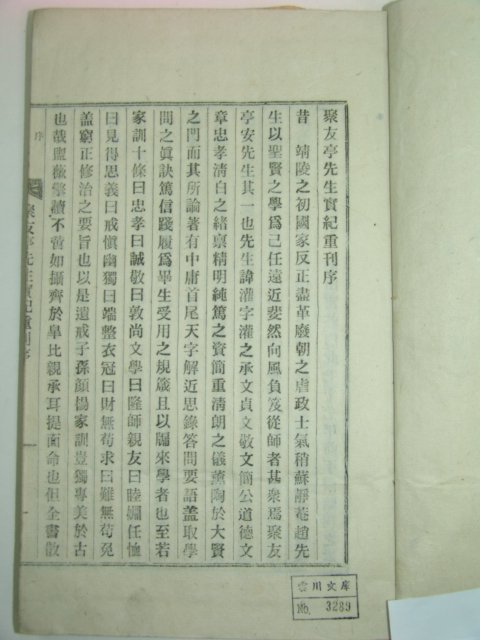 聚友亭先生實紀重刊序
昔 靖陵之初國家反正盡革廢朝之虐政士氣稍蘇靜菴趙先
生以聖賢之學爲己任遠近斐然向風負笈從師者甚衆焉聚友
亭安先生其一也先生諱灌字灌之承文貞文敬文簡公道德文
章忠孝清白之緒禀精明純篤之資簡重清朗之儀薰陶於大賢
之門而其所論著有中庸首尾天字解近思錄答問要語盖取學
問之眞訣篤信踐履爲畢生受用之規箴且以屬來學者也至若
家訓十條曰忠孝曰誠敬曰敦尚文學曰隆師親友曰睦婣任恤
曰見得思義曰戒愼幽獨曰端整衣冠曰財無苟求曰難無苟免
盖窮正修治之要旨也以是遺戒子孫顏楊家訓豈獨專美於古
也哉盥薇擎讀不啻如攝齊於皐比親承耳提面命也但全書散
聚友亭先生實紀重刊序
序
雲川文庫
No. 3289